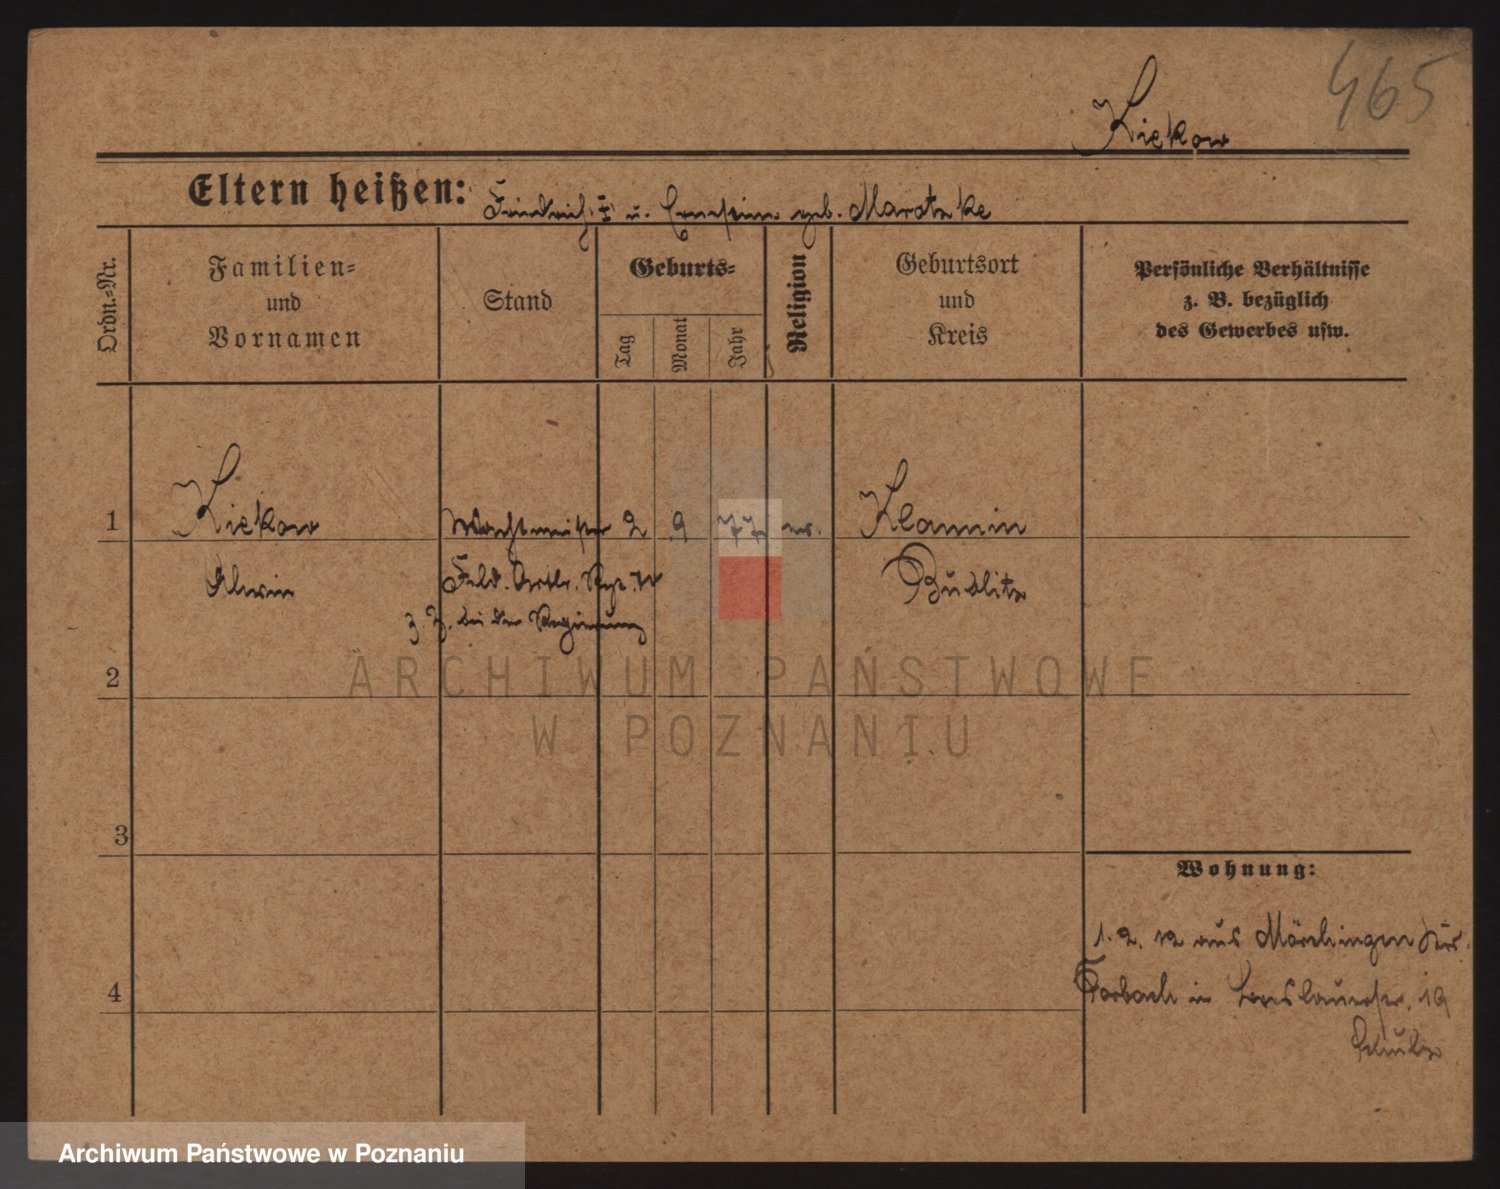 465
Kiekow
Eltern heißen: Friedrich u. Ernestine geb. Maratzke
Ordn.-Nr.
Familien-
und
Vornamen
Stand
Geburts-
Tag
Monat
Jahr
Religion
Geburtsort
und
Kreis
Persönliche Verhältnisse
z. B. bezüglich
des Gewerbes usw.
1 Kiekow Wachtmeister 2 9 77 ev. Klannin
Alwin Feld-Artlr. Regt. Bublitz
z. Z. bei der Regierung
2
3
4
Wohnung:
1. 2. 12 aus Mörchingen Kr.
Forbach in 19
Schulz
ARCHIWUM PAŃSTWOWE
W POZNANIU
Archiwum Państwowe w Poznaniu